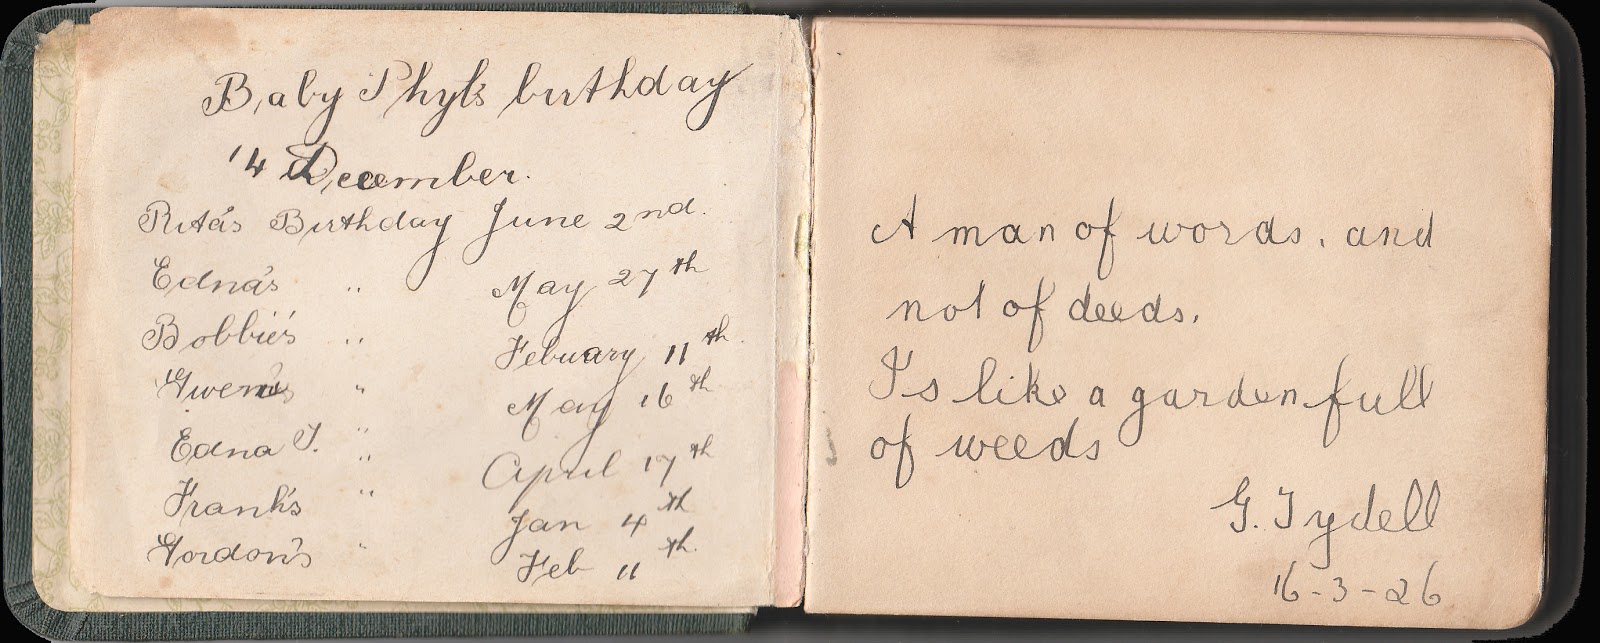 Baby Phyl's birthday
14 December.
Rita's Birthday June 2nd.
Edna's " May 27th
Bobbie's " Febuary 11th.
Gwen's " May 16th
Edna T. " April 17th
Frank's " Jan 4th
Gordon's " Feb 11th.
A man of words, and
not of deeds.
Is like a garden full
of weeds
G. Tydell
16-3-26